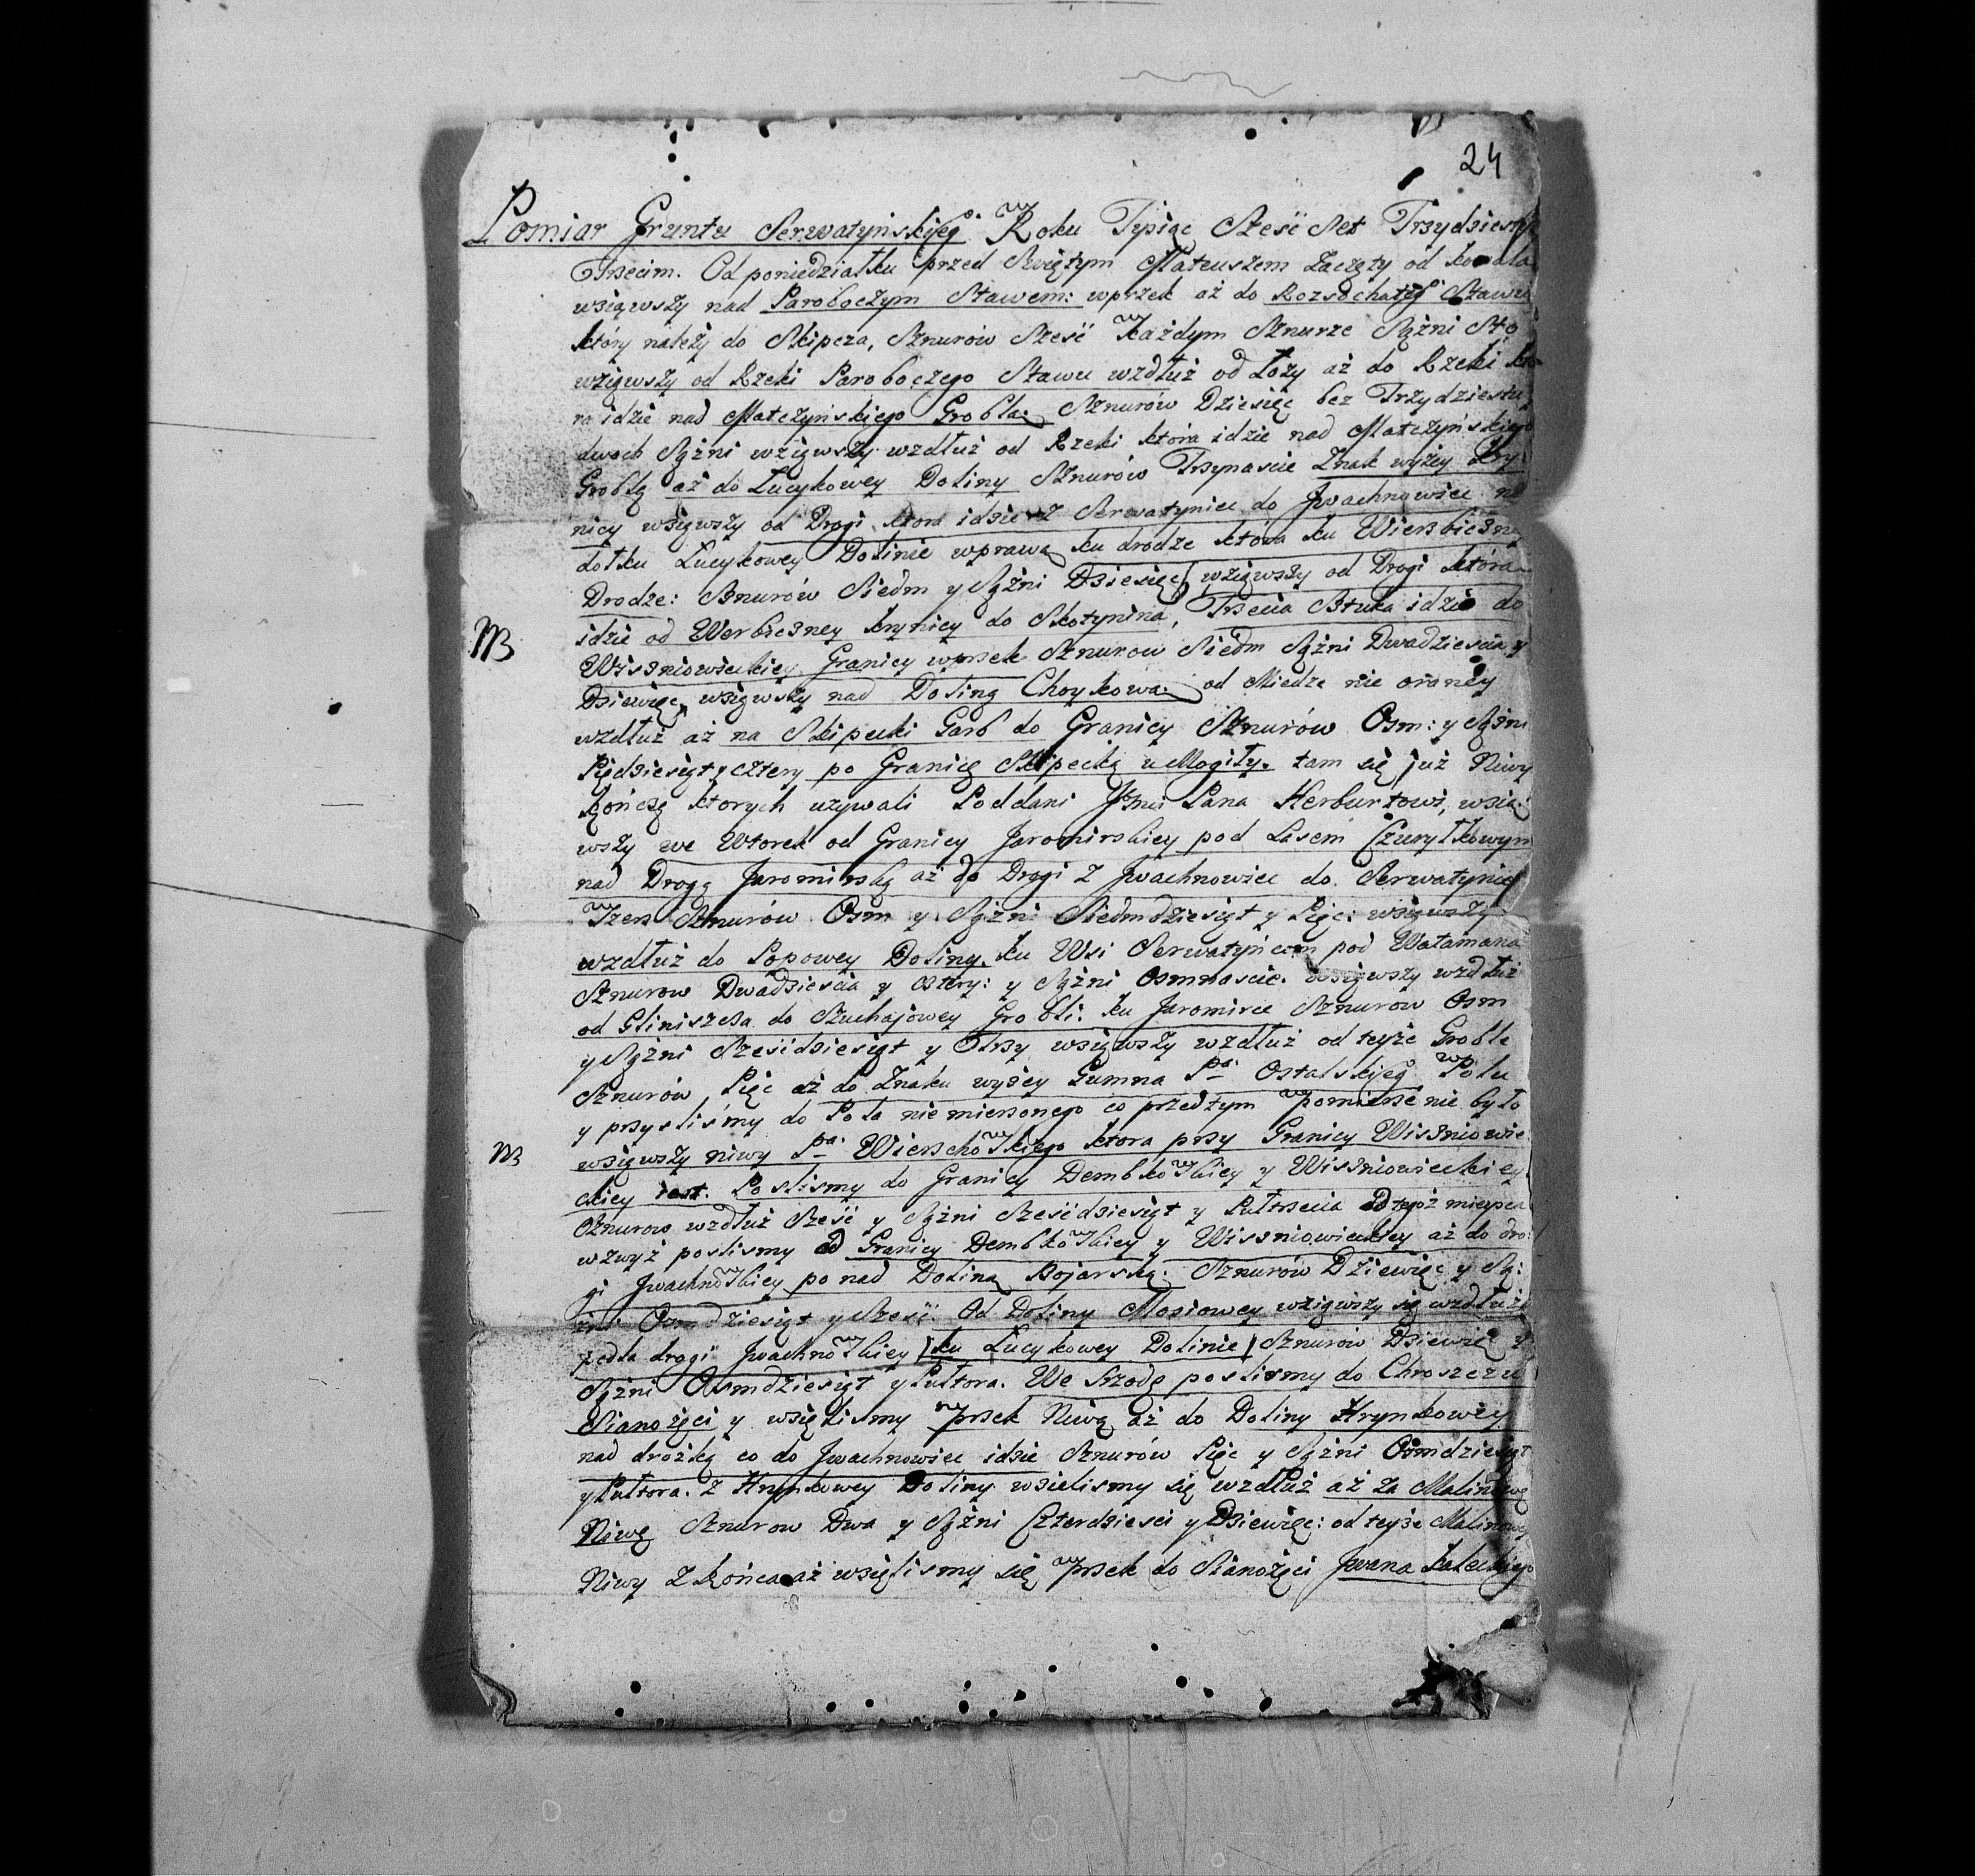 24
Pomiar Gruntu Serwatyńskieg° w Roku Tysiąc Sześć Set Trzydziesty
Trzecim. Od poniedziałku przed Swiętym Mateuszem Zaczęty od kowala
wziąwszy nad Paroboczym Stawem: wprzek aż do Rozsochateg° Stawu
który należy do Skipcza, Sznurów Sześć w każdym Sznurze Sążni Sto
wziąwszy od Rzeki Paroboczego Stawu wzdłuż od Łozy aż do Rzeki kto-
ra idzie nad Matczyńskiego Groblą: Sznurów Dziesięć bez Trzydziestu
dwoch Sążni wziąwszy wzdłuż od Rzeki która idzie nad Matczyńskiego
Groblą aż do Łucykowey Doliny Sznurów Trzynaście Znak wyżey Kry-
nicy wziąwszy od Drogi ktora idzie z Serwatyniec do Jwachnowiec na
dołku Łucykowey Dolinie wprawą ku drodze która ku Wierzbiczny
Drodze: Sznurów Siedm y Sążni Dziesięć wziąwszy od Drogi która
idzie od Werbiczney krynicy do Skotynina, Trzecia Sztuka idzie do
M3
Wiszniowieckiey Granicy wprzek Sznurow Siedm Sążni Dwadzieścia y
Dziewięć, wziąwszy nad Doliną Choykową: od Miedze nie oraney
wzdłuż aż na Skipecki Garb do Granicy Sznurów Osm: y Sążni
Pięćdziesiąt y cztery po Granicę Skipecką u Mogiły. tam się już Niwy
kończą ktorych używali Poddani Jmci Pana Herburtowi, wzią-
wszy we Wtorek od Granicy Jaromirskiey pod Lasem Czuryłkowym
nad Drogą Jaromirską aż do Drogi z Jwachnowiec do Serwatyniec
wszerz Sznurów Osm y Sążni Siedmdziesiąt y Pięć: wziąwszy
wzdłuż do Popowey Doliny. ku Wsi Serwatyńcom pod Watamana
Sznurow Dwadzieścia y cztery: y Sążni Osmnaście. wziąwszy wzdłuż
od Gliniszcza do Szuchajowey Grobli. ku Jaromirce Sznurow Osm
y Sążni Sześćdziesiąt y Trzy wziąwszy wzdłuż od teyże Groble
Sznurów Pięć aż do Znaku wyżey Gumna Pa: Ostalskieg° w Polu
y przysliśmy do Pola niemierzonego co przedtym w pomierze nie było
M3
wziąwszy niwy Pa: Wierzchowskiego ktora przy Granicy Wiszniowie-
ckiey iest. Poslismy do Granicy Dembkowskiey y Wiszniowieckiey
Sznurow wzdłuż Sześć y Sążni Sześćdziesiąt y Pułtrzecia od tegoż mieysca
wzwyż poslismy od Granicy Dembkowskiey y Wiszniowieckiey aż do dro-
gi Jwachnowskiey po nad Doliną Bojarską: Sznurów Dziewięć y Są:
żni: Osmdziesiąt y Sześć. Od Doliny Mosiowey wziąwszy się wzdłuż
podla drogi Jwachnowskiey /ku Łucykowey Dolinie/ Sznurów Dziewięć y
Sążni Osmdziesiąt y Pułtora. We Srzodę poslismy do Chroszczu
Sianożęci y wzięlismy w przek Niwą aż do Doliny Hrynkowey
nad drożką co do Jwachnowiec idzie Sznurów Pięć y Sążni Osmdziesiąt
y Pułtora. z Hrynkowey Doliny wzielismy się wzdłuż aż za Malinową
Niwę Sznurow Dwa y Sążni Czterdzieści y Dziewięć: od teyże Malinowey
Niwy z Końca aż wzięlismy się w przek do Sianożęci Jwana Kaleckiego